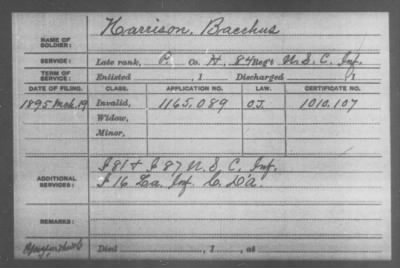 NAME OF SOLDIER: Harrison, Bacchus
SERVICE: Late rank, P. Co. H, 84 Reg't U.S.C. Inf.
TERM OF SERVICE: Enlisted , 1 Discharged , 1
DATE OF FILING. CLASS. APPLICATION NO. LAW. CERTIFICATE NO.
1895 Mch. 19 Invalid, 1165.089 O.J. 1010.107
Widow,
Minor,
ADDITIONAL SERVICES: I 81 + I 87 U.S.C. Inf.
I 16 La. Inf. C. D'A.
REMARKS:
Died , 1 , at